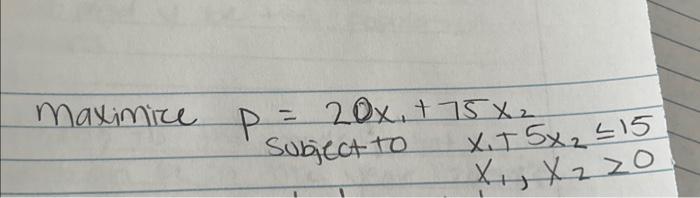 maximize P = 20x₁ + 75x₂
subject to x₁ + 5x₂ ≤ 15
x₁, x₂ ≥ 0